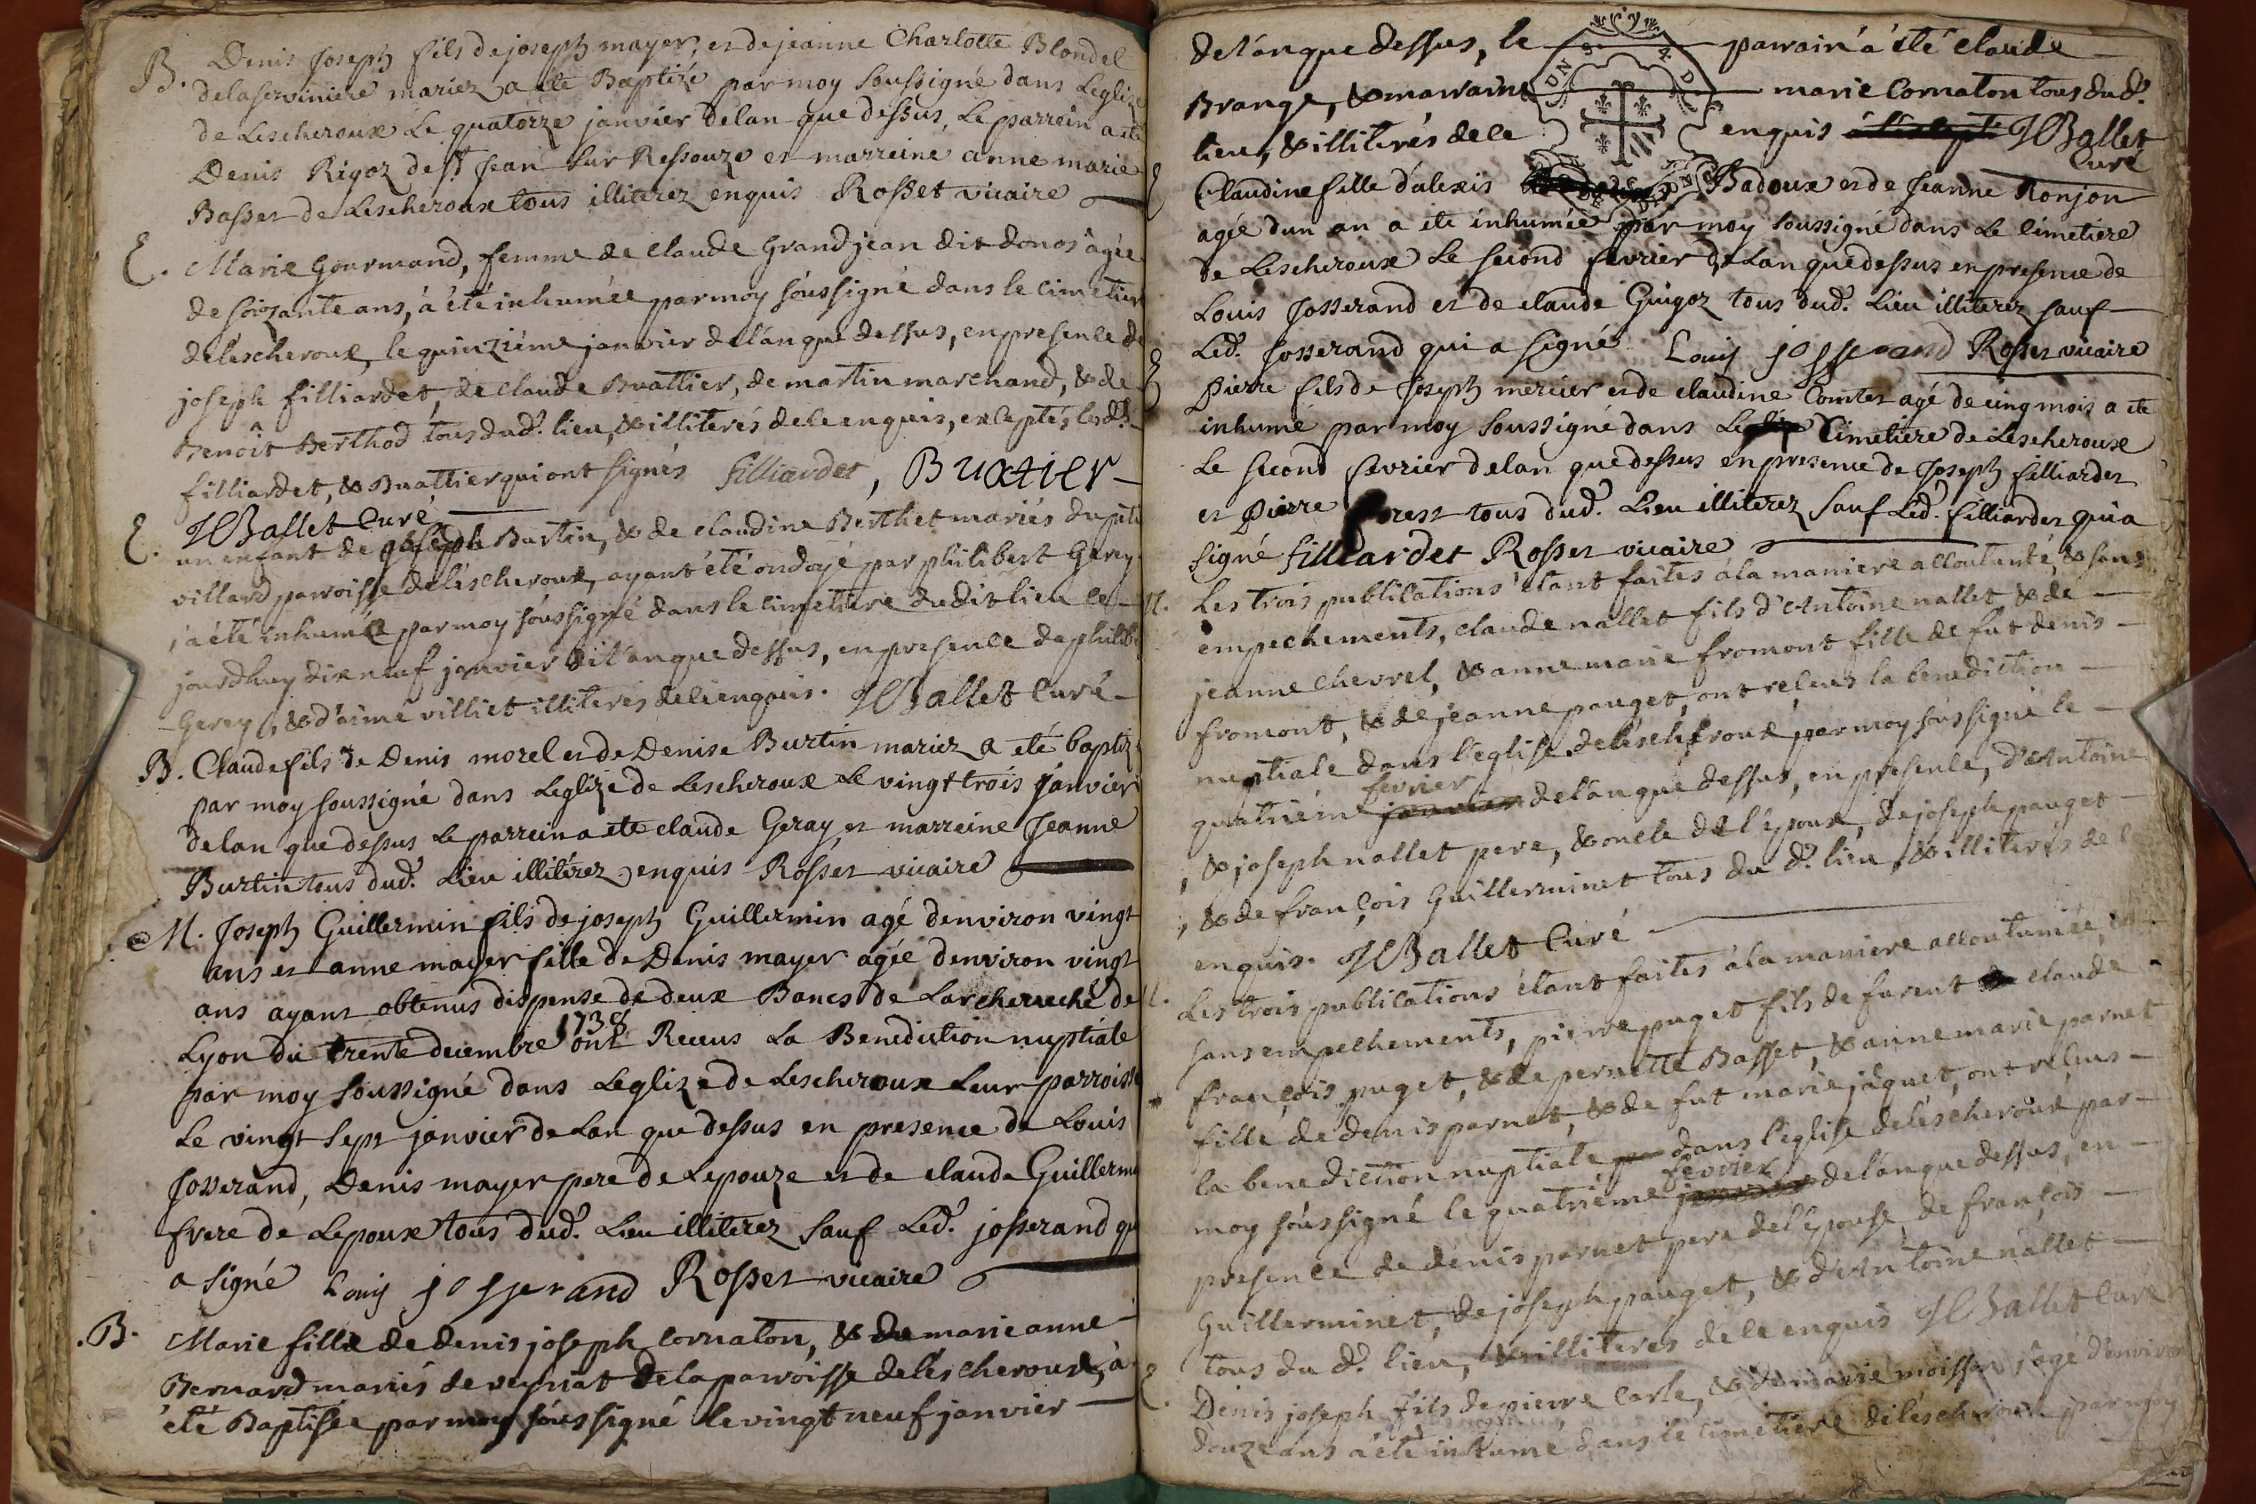 B. Denis Joseph fils de joseph mayer, et de jeanne Charlotte Blondel
delaserviniere mariez a ete Baptizé par moy soussigné dans Leglize
de Lescheroux Le quatorze janvier delan que dessus, Le parrein a ete
Denis Rigoz de st Jean sur Ressouze et marreine anne marie
Basset de Lescheroux tous illiterez enquis Rosset vicaire
E. Marie Gourmand, femme de claude Grandjean dit donos âgée
de soixante ans, à été inhumée par moy soussigné dans le cimetier
délescheroux, le quinziéme janvier de l'an que dessus, en presence de
joseph filliardet, de claude Buattier, de martin marchand, & de
Benoît Berthod tous dud.t lieu, & illiterés de ce enquis, exceptés lesd.ts
filliardet, & Buattier qui ont signés filliardet, Buatier
JBallet Curé
E. un enfant de joseph Burtin, & de claudine Berthet mariés du petit
villard paroisse délescheroux, ayant été ondoyé par philibert Gerey
, a été inhumée par moy soussigné dans le cimetiere du dit lieu ce
jourdhuy dix neuf janvier de l'an que dessus, en presence de philib
Gerey, & d'aimé villiet illiterés de ce enquis. JBallet Curé
B. Claude fils de Denis morel et de Denise Burtin mariez a eté baptiz
par moy soussigné dans Leglize de Lescheroux Le vingt trois janvier
delan que dessus Le parrein a ete claude Geray, et marreine Jeanne
Burtin tous dud.t Lieu illiterez enquis Rosset vicaire
M. Joseph Guillermin fils de joseph Guillermin agé denviron vingt
ans et anne mayer fille de Denis mayer agée denviron vingt
ans ayant obtenus dispense de deux Bancs de Larcheveché de
Lyon du trente decembre 1738 ont Receus La Benediction nuptiale
par moy soussigné dans Leglize de Lescheroux Leur parroisse
Le vingt sept janvier de Lan que dessus en presence de Louis
Josserand, Denis mayer pere de Lepouze et de claude Guillermi
frere de Lepoux tous dud.t Lieu illiterez sauf Led.t josserand qu
a signé Louis josserand Rosset vicaire
B. Marie fille de denis joseph Cornaton, & de marie anne
Bernard mariés de veyriat de la paroisse délescheroux, à
été Baptisée par moy soussigné le vingt neuf janvier
de l'an que dessus, le parrain à été claude
Brange, & marraine marie Cornaton tous dud.t
lieu, & illiterés de ce enquis JBallet
Curé
E Claudine fille d'alexis Badoux et de Jeanne Ronjon
agée dun an a ete inhumée par moy soussigné dans Le Cimetiere
de Lescheroux Le second fevrier de Lan que dessus en presence de
Louis Josserand et de claude Guigoz tous dud.t Lieu illiterez sauf
Led.t Josserand qui a signé Louis josserand Rosset vicaire
E Pierre fils de Joseph mercier et de claudine Comtet agé de cinq mois a ete
inhumé par moy soussigné dans Le Cimetiere de Lescheroux
Le second fevrier delan que dessus en presence de Joseph filliardet
et Pierre forest tous dud.t Lieu illiterez sauf Led.t filliardet qui a
signé filliardet Rosset vicaire
M. Les trois publications étant faites à la maniere accoutumé, & sans
empechements, claude nallet fils d'Antoine nallet & de
jeanne chevrel, & anne marie fromont fille de fut denis
fromont, & de jeanne pauget, ont reçeus la benediction
nuptiale dans l'eglise délescheroux par moy soussigné le
quatriéme fevrier de l'an que dessus, en presence, d'Antoine
, & joseph nallet pere, & oncle de l'époux, de joseph pauget
, & de françois Guillerminet tous du d.t lieu, & illiterés de
enquis. JBallet Curé
M. Les trois publications étant faites à la maniere accoutumée, &
sans empechements, pierre puget fils de furent claude
françois puget, & de pernette Basset, & anne marie parnet
fille de denis parnet, & de fut marie jàquet, ont reçeus
la benediction nuptiale dans l'eglise délescheroux par
moy soussigné le quatriéme fevrier de l'an que dessus, en
presence de denis parnet pere de l'épouse, de françois
Guillerminet, de joseph pauget, & d'Antoine nallet
tous du d.t lieu, & illiterés de ce enquis JBallet Curé
E. Denis joseph fils de pierre Carle, & de marie moisson, âgé d'environ
douze ans à été inhumé dans le cimetiere délescheroux par moy